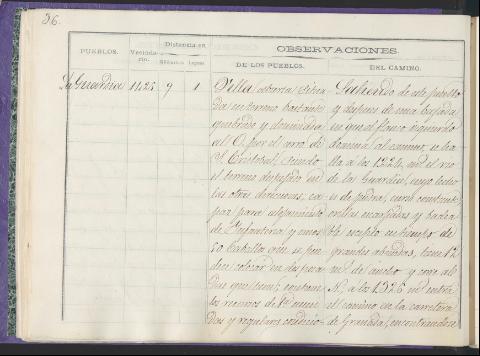 36.
PUEBLOS.
Vecinda-
rio.
Distancia en
Kilómetros
Leguas
OBSERVACIONES.
DE LOS PUEBLOS.
DEL CAMINO.
La Guardia
1425
9
1
Villa abierta situa-
da en terreno bastante
quebrado y dominada
al O. por el cerro de
S. Cristóbal, siendo
el terreno despejado en
las otras direcciones, ca-
paz para alojamiento
de Infantería y unos
20 Caballos con se pue-
den colocar en des posa-
das que tiene; contando
recursos de 1ª nece
das y regulares condicio-
Saliendo de este pueblo
y despues de una bajada
en que el flanco izquierdo
domina al camino se ha-
lla a los 1224 m. el rio
de la Guardia, cuyo lecho
es de piedra,
orillas escarpadas y vadea-
ble excepto en tiempo de
grandes avenidas, tiene 12
m. de ancho y corre al
N. a los 1326 m. entra
el camino en la carretera
de Granada, encontrandose